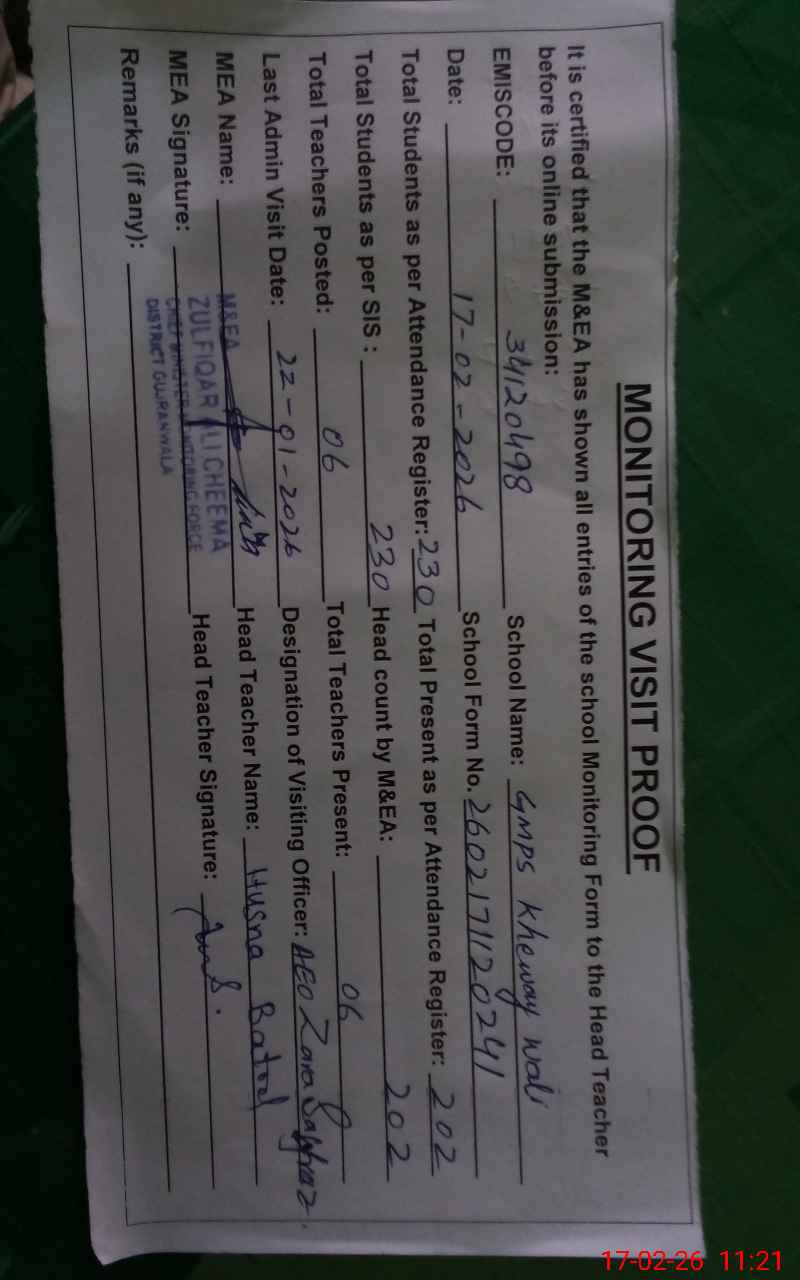 MONITORING VISIT PROOF
It is certified that the M&EA has shown all entries of the school Monitoring Form to the Head Teacher
before its online submission:
EMISCODE: 34120498 School Name: GMPS Kheway Wali
Date: 17-02-2026 School Form No. 2602171120241
Total Students as per Attendance Register: 230 Total Present as per Attendance Register: 202
Total Students as per SIS : 230 Head count by M&EA: 202
Total Teachers Posted: 06 Total Teachers Present: 06
Last Admin Visit Date: 22-01-2026 Designation of Visiting Officer: AEO Zara Sarfraz.
MEA Name: Head Teacher Name: Husna Batool
MEA Signature: Head Teacher Signature:
Remarks (if any):
M&EA
ZULFIQAR ALI CHEEMA
CHIEF MINISTER MONITORING FORCE
DISTRICT GUJRANWALA
17-02-26 11:21